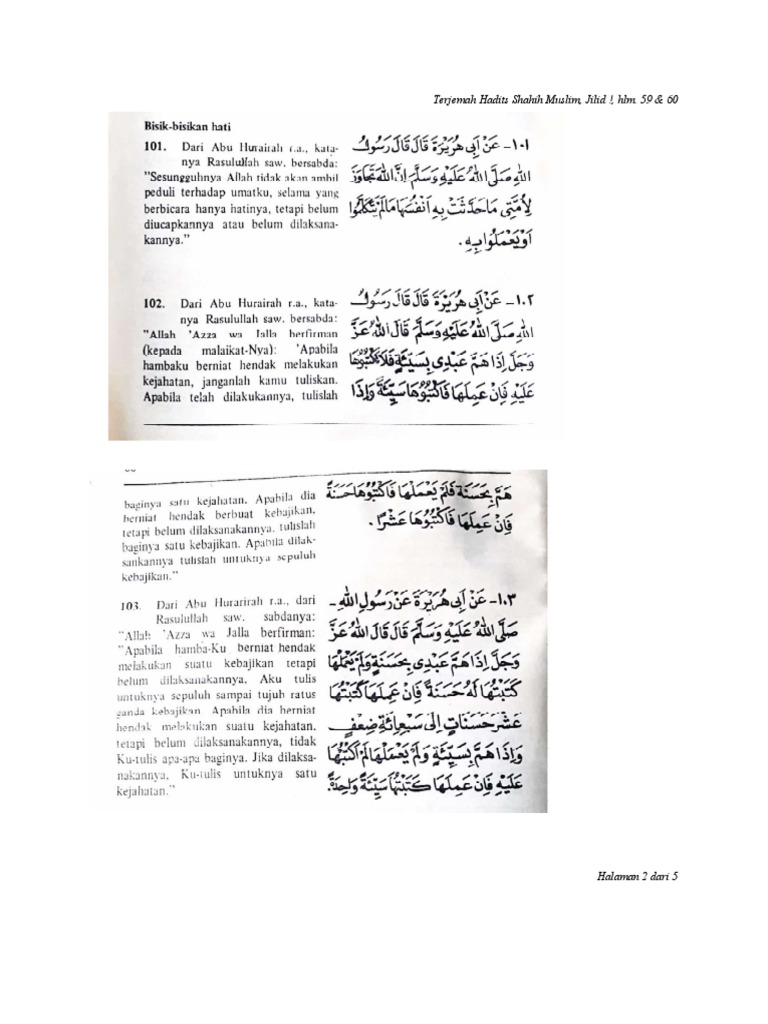 Terjemah Hadits Shahih Muslim, Jilid !, hlm. 59 & 60
Bisik-bisikan hati
101. Dari Abu Hurairah r.a., kata-
nya Rasulullah saw. bersabda:
"Sesungguhnya Allah tidak akan ambil
peduli terhadap umatku, selama yang
berbicara hanya hatinya, tetapi belum
diucapkannya atau belum dilaksana-
kannya."
١٠١- عَنْ اَبِى هُرَيْرَةَ قَالَ قَالَ رَسُوْلُ
اللهِ صَلَّى اللهُ عَلَيْهِ وَسَلَّمَ اِنَّ اللهَ تَجَاوَزَ
لِاُمَّتِى مَاحَدَّثَتْ بِهِ اَنْفُسَهَا مَالَمْ يَتَكَلَّمُوْا
اَوْيَعْمَلُوْا بِهِ.
102. Dari Abu Hurairah r.a., kata-
nya Rasulullah saw. bersabda:
"Allah 'Azza wa Jalla berfirman
(kepada malaikat-Nya): 'Apabila
hambaku berniat hendak melakukan
kejahatan, janganlah kamu tuliskan.
Apabila telah dilakukannya, tulislah
١٠٢- عَنْ اَبِى هُرَيْرَةَ قَالَ قَالَ رَسُوْلُ
اللهِ صَلَّى اللهُ عَلَيْهِ وَسَلَّمَ قَالَ اللهُ عَزَّ
وَجَلَّ اِذَا هَمَّ عَبْدِى بِسَيِّئَةٍ فَلَا تَكْتُبُوْهَا
عَلَيْهِ فَاِنْ عَمِلَهَا فَاكْتُبُوْهَا سَيِّئَةً وَاِذَا
baginya satu kejahatan. Apabila dia
berniat hendak berbuat kebajikan,
tetapi belum dilaksanakannya, tulislah
baginya satu kebajikan. Apabila dilak-
sankannya tulislah untuknya sepuluh
kebajikan."
هَمَّ بِحَسَنَةٍ فَلَمْ يَعْمَلْهَا فَاكْتُبُوْهَا حَسَنَةً
فَاِنْ عَمِلَهَا فَاكْتُبُوْهَا عَشْرًا.
103. Dari Abu Hurarirah r.a., dari
Rasulullah saw. sabdanya:
"Allah 'Azza wa Jalla berfirman:
"Apabila hamba-Ku berniat hendak
melakukan suatu kebajikan tetapi
belum dilaksanakannya, Aku tulis
untuknya sepuluh sampai tujuh ratus
ganda kebajikan. Apabila dia berniat
hendak melakukan suatu kejahatan,
tetapi belum dilaksanakannya, tidak
Ku-tulis apa-apa baginya. Jika dilaksa-
nakannya, Ku-tulis untuknya satu
kejahatan."
١٠٣- عَنْ اَبِى هُرَيْرَةَ عَنْ رَسُوْلِ اللهِ -
صَلَّى اللهُ عَلَيْهِ وَسَلَّمَ قَالَ قَالَ اللهُ عَزَّ
وَجَلَّ اِذَا هَمَّ عَبْدِى بِحَسَنَةٍ وَلَمْ يَعْمَلْهَا
كَتَبْتُهَا لَهُ حَسَنَةً فَاِنْ عَمِلَهَا كَتَبْتُهَا
عَشْرَ حَسَنَاتٍ اِلَى سَبْعِمِائَةِ ضِعْفٍ
وَاِذَا هَمَّ بِسَيِّئَةٍ وَلَمْ يَعْمَلْهَا لَمْ اَكْتُبْهَا
عَلَيْهِ فَاِنْ عَمِلَهَا كَتَبْتُهَا سَيِّئَةً وَاحِدَةً.
Halaman 2 dari 5